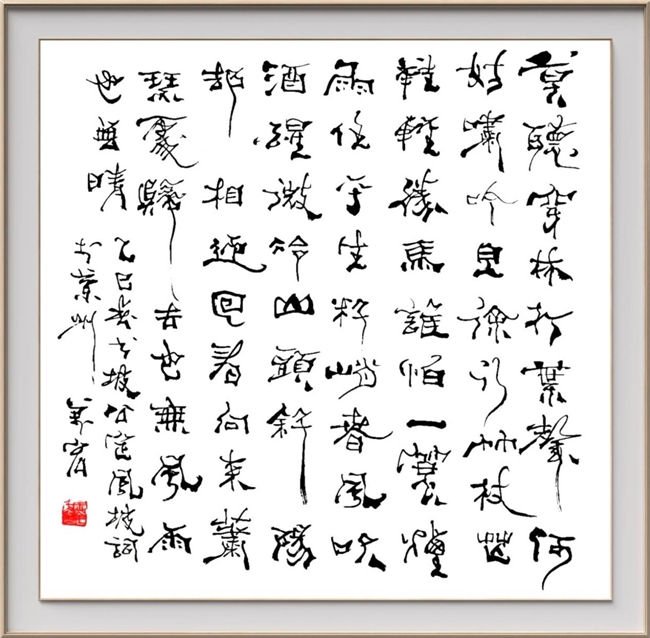 莫聽穿林打葉聲何
妨嘯吟且徐行竹杖芒
鞋輕勝馬誰怕一蓑煙
雨任平生料峭春風吹
酒醒微冷山頭斜陽
却相迎回看向來蕭
瑟處歸去也無風雨
也無晴
乙巳春書坡公定風坡詞
於蘭州